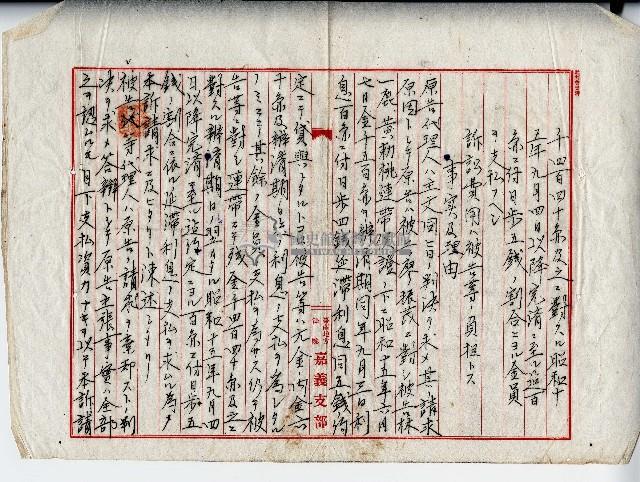 千四百四十円及之ニ對スル昭和十
五年九月四日以降完濟ニ至ル迄百
円ニ付日歩五錢ノ割合ニヨル金員
ヲ支払フヘシ
訴訟費用ハ被告等ノ負担トス
事実及理由
原告代理人ハ主文同旨ノ判決ヲ求メ其請求
原因トシテ原告ハ被告廖振茂ニ對シ被告林
一鹿黄勅桃連帯保證ノ下ニ昭和十五年六月
七日金千五百円ヲ辨濟期同年九月三日利
息百円ニ付日歩四錢延滯利息同五錢約
定ニテ貸與シタルトコロ被告等ハ元金内金六
十円及辨濟期迄ノ利息ノ支払ヲ為シタル
ノミニシテ其餘ノ金員ノ支払ヲ為サス仍テ被
告等ニ對シ連帯ニテ残金千四百四十円及之ニ
對スル辨濟期ノ翌日タル昭和十五年九月四
日以降完濟ニ至ル迄約定ノ百円ニ付日歩五
錢ノ割合ニ依ル延滯利息ノ支払ヲ求ムル為メ
本訴請求ニ及ヒタリト陳述シタリ
被告 等代理人ハ原告ノ請求ヲ棄却ストノ判
決ヲ求メ答辯トシテ原告主張事實ハ全部
之ヲ認ムルモ目下支払資力ナキヲ以テ本訴請
嘉義支部